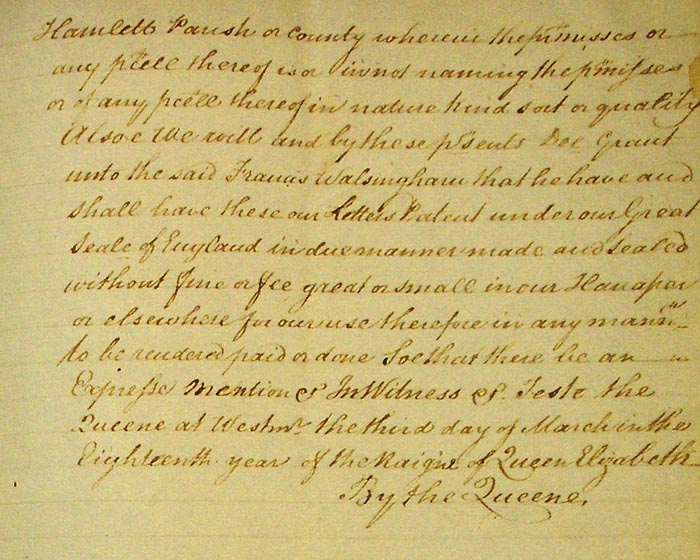 Hamletts Parish or County wherein the p̃misses or
any p̃cell thereof is or in not naming the p̃misses
or of any p̃cell thereof in nature kind sort or quality
Alsoe We will and by these p̃sents Doe Grant
unto the said Francis Walsingham that he have and
shall have these our Letters Patent under our Great
Seale of England in due manner made and sealed
without fine or fee great or small in our Hanaper
or elsewhere for our use therefore in any mann̄
to be rendered paid or done Soe that there be an
Expresse mention &c In Witness &c. Teste the
Queene at Westmr. the third day of March in the
Eighteenth year of the Raigne of Queen Elizabeth
By the Queene.